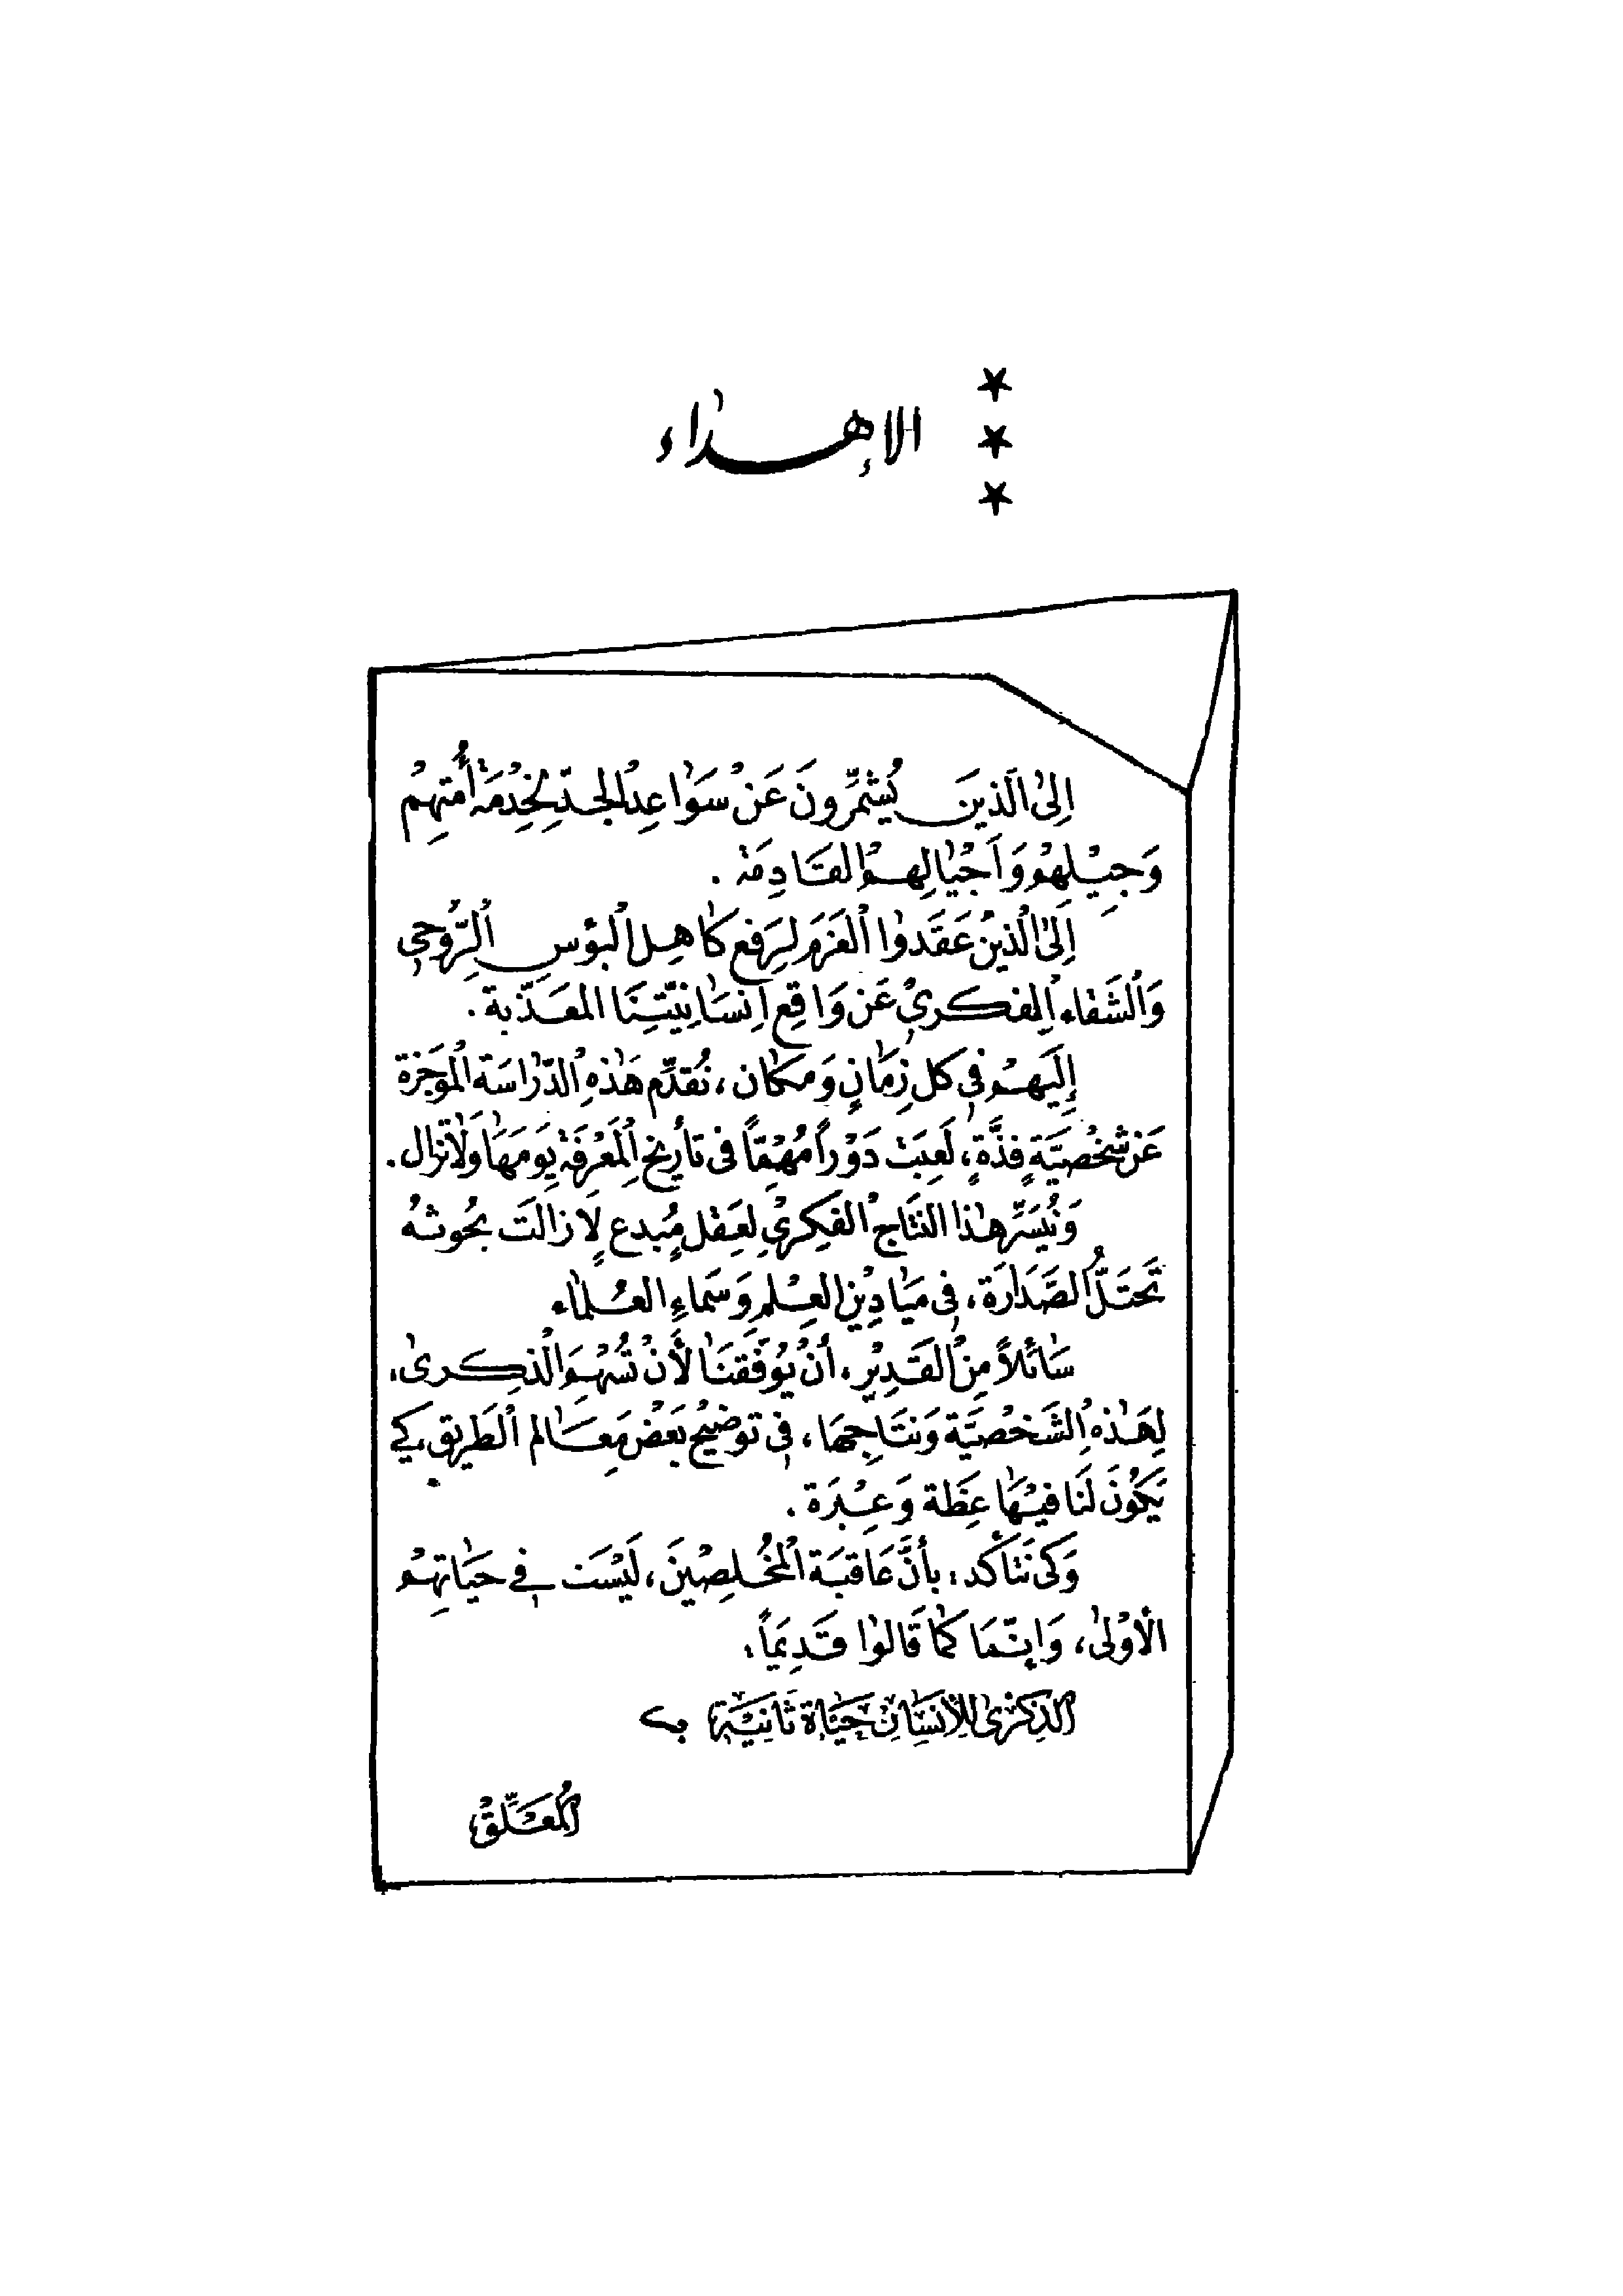 الإهداء
إلى الذين يشمّرون عن سواعد الجدّ لخدمة أمتهم
وجيلهم وأجيالهم القادمة .
إلى الذين عقدوا العزم لرفع كاهل البؤس الرّوحي
والشقاء الفكري عن واقع إنسانيّتنا المعذّبة .
إليهم في كل زمانٍ ومكان ، نُقدّم هذه الدّراسة الموجزة
عن شخصيّةٍ فذّةٍ ، لعبت دوراً مُهمّاً في تأريخ المعرفة يومها ولا تزال .
ونُيسّر هذا النتاج الفكري لعقلٍ مُبدعٍ لا زالت بحوثه
تحتلّ الصّدارة ، في ميادين العلم وسماء العلماء
سائلاً من القدير ، أن يوفّقنا لأن تُسهم الذكرى ،
لهذه الشخصيّة ونتاجها ، في توضيح بعض معالم الطريق ، كي
يكون لنا فيها عظة وعبرة .
وكي نتأكد : بأنّ عاقبة المخلصين ، ليست في حياتهم
الأولى ، وإنّما كما قالوا قديماً :
الذكرى للإنسان حياة ثانية
المعلّق